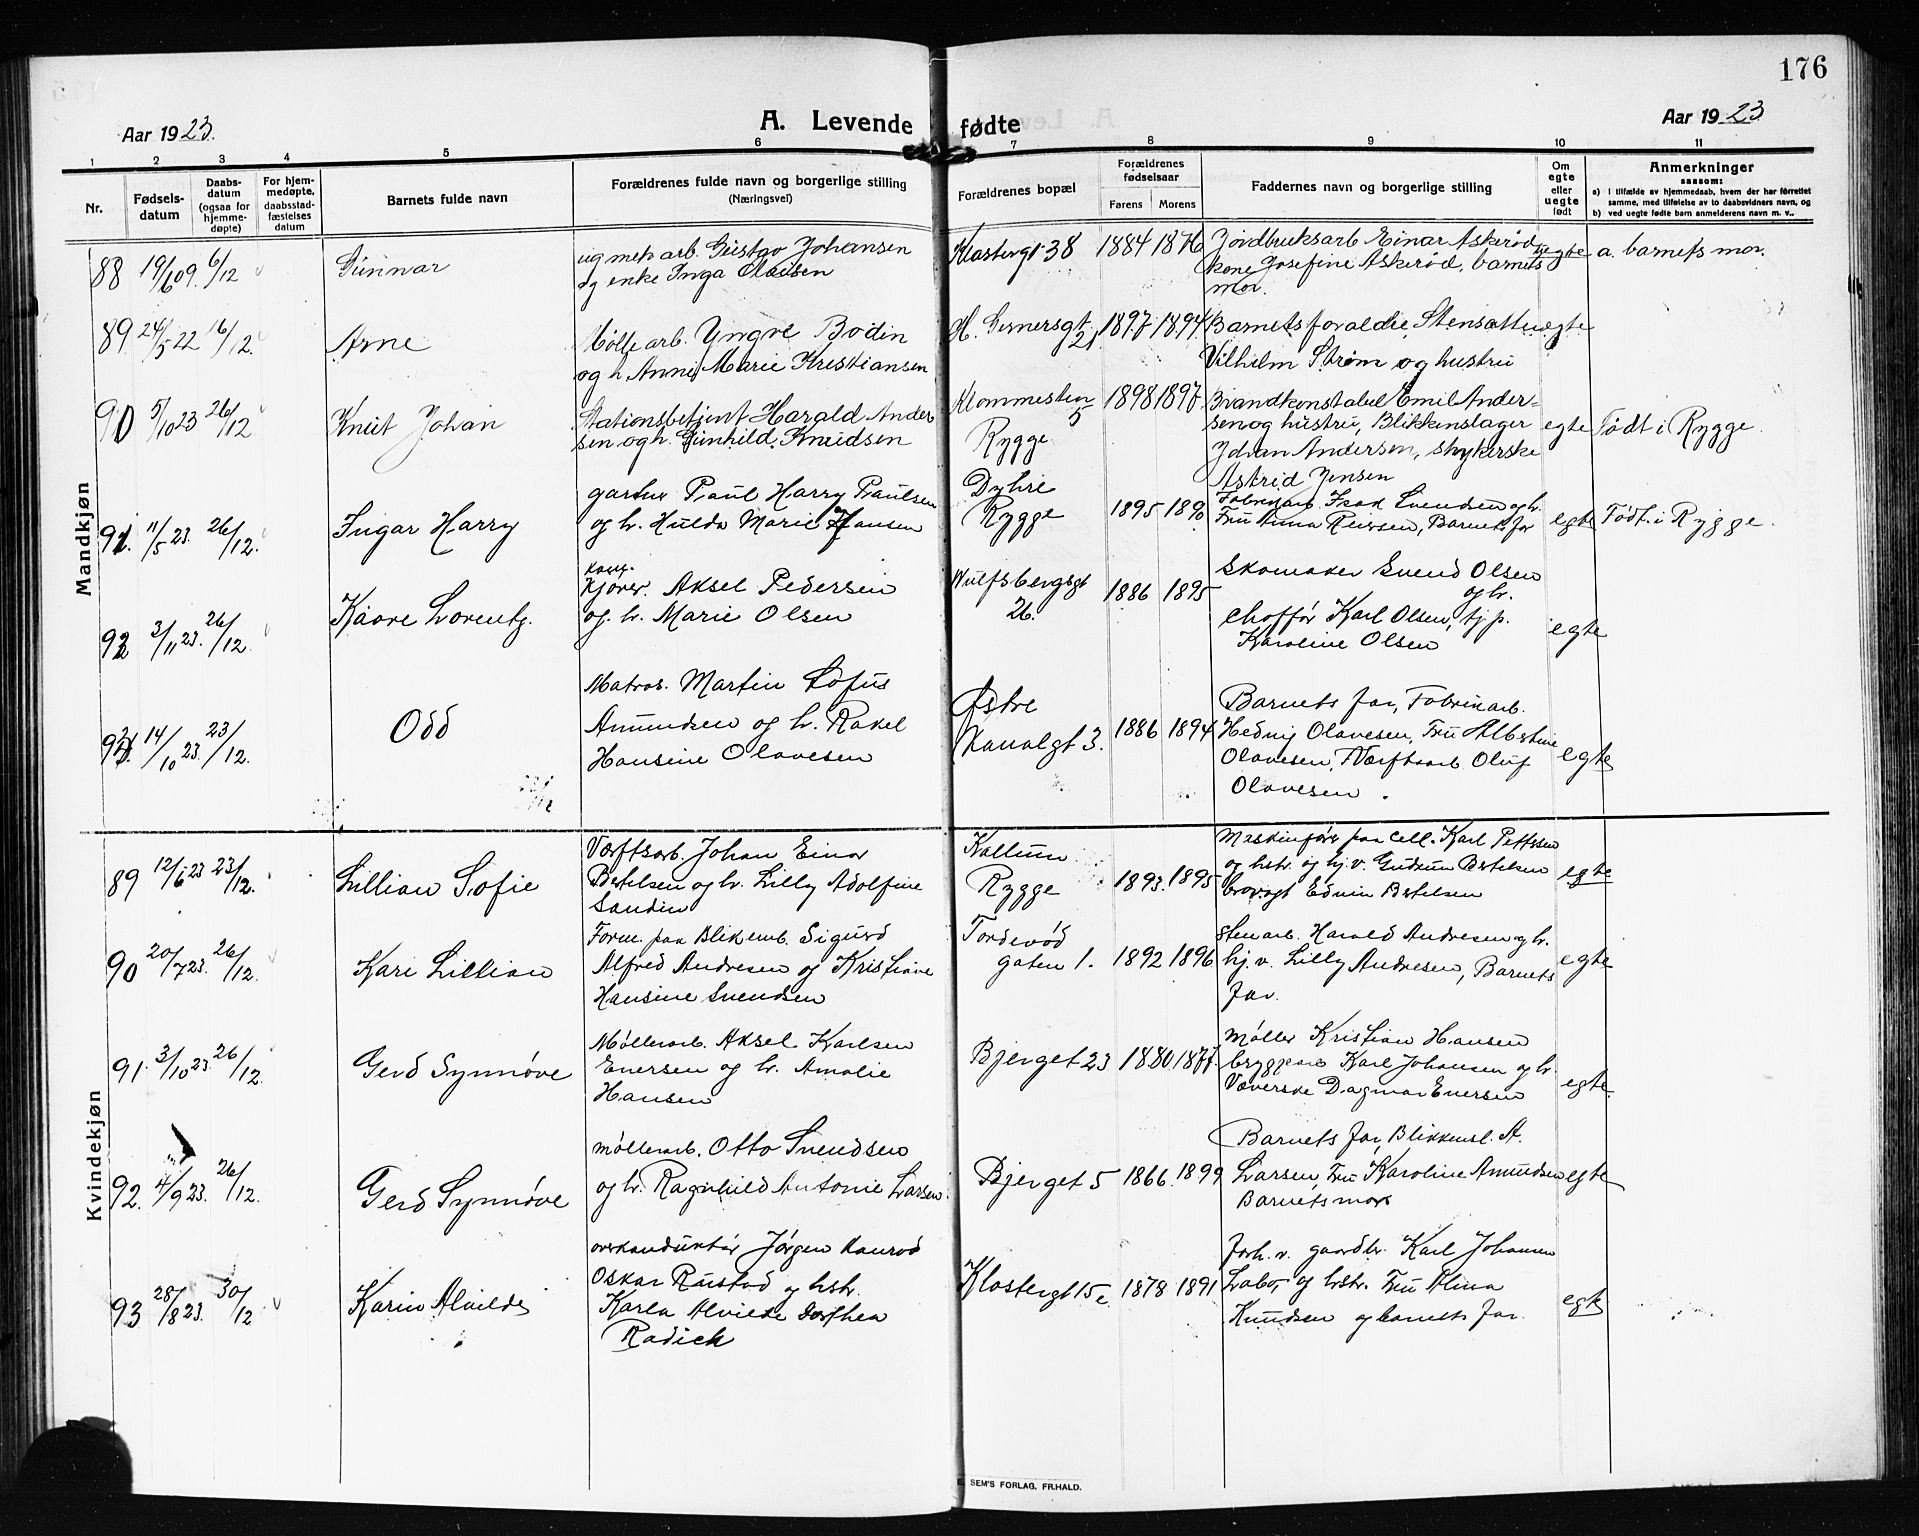 176
Aar 1923.
A. Levende fødte
Aar 1923
1 2 3 4 5 6 7 8 9 10 11
Nr.
Fødsels-
datum
Daabs-
datum
(ogsaa for
hjemme-
døpte)
For hjem-
medøpte,
daabsstad-
fæstelses
datum
Barnets fulde navn
Forældrenes fulde navn og borgerlige stilling
(Næringsvei)
Forældrenes bopæl
Forældrenes
fødselsaar
Farens Morens
Faddernes navn og borgerlige stilling
Om
egte
eller
uegte
født
Anmerkninger
saasom:
a) i tilfælde av hjemmedaab, hvem der har forrettet
samme, med tilføielse av to daabsvidners navn, og
b) ved uegte fødte barn anmelderens navn m. v..
Mandkjøn
88 19/6 09. 6/12 Gunnar
ugm. arb. Gustav Johansen
og enke Inga Olausen
Klostergt 38 1884 1876
Jordbruksarb Einar Askerød
kone Josefine Askerød, barnets
mor.
uegte a. barnets mor.
89 24/5 22 16/12. Arne
Mølle arb. Yngve Bodin
og h. Anne Marie Kristiansen
H. Gernersgt 21 1897 1894
Barnets foraldre, Stensatter
Vilhelm Strøm og hustru
egte
90 5/10 23 26/12 Knut Johan
Stationsbetjent Harald Ander
sen og h. Gunhild Knudsen
Klommesten 5
Rygge
1898 1897
Brandkonstabel Emil Ander-
sen og hustru, Blikkenslager
Johan Andersen, strykerske
Astrid Jensen
egte Født i Rygge
91. 11/5 23. 26/12. Ingar Harry
gartner Paul Harry Paulsen
og h. Hulda Marie Hansen
Dyhre
Rygge
1895 1890
Fabrikarb Isak Svendsen og h.
Fru Anna Reiersen, Barnets far
egte Født i Rygge.
92 3/11 23. 26/12. Kaare Lorentz.
Kjører. Aksel Pedersen
og. h. Marie Olsen
Wulfsbergsgt
26.
1886 1895
Skomaker Svend Olsen
og h.
chaffør Karl Olsen, tj p.
Karoline Olsen
egte
93 14/10 23. 23/12. Odd
Matros. Martin Lofus
Amundsen og h. Rakel
Hansine Olavesen
Østre
Kanalgt 3.
1886 1894
Barnets far, Fabrikarb.
Hedvig Olavesen, Fru Albertine
Olavesen, Værftsarb Oluf
Olavesen.
egte
Kvindekjøn
89 12/6 23 23/12. Lillian Sofie
Værftsarb. Johan Einar
Bertelsen og h. Lilly Adolfine
Sandin
Kallum
Rygge
1893. 1895
Maskinfører paa Cell. Karl Pettersen
og hstr. og hj. v. Gudrun Bertelsen
brovagt Edvin Bertelsen
egte
90 20/7 23. 26/12. Kari Lillian
Form. paa Blikemb. Sigurd
Alfred Andresen og Kristiane
Hansine Svendsen
Tordenød
gaten 1.
1892 1896
Stenarb. Harald Andresen og h.
hj. v. Lilly Andresen, Barnets
far.
egte
91. 3/10 23. 26/12. Gerd Synnøve
Møllerarb. Aksel Karlsen
Enersen og h. Amalie
Hansen
Bjerget 23 1880 1877.
Møller Kristian Hansen
bryggearb Karl Johansen og h.
Væverske Dagmar Enersen
egte.
92. 4/9 23. 26/12. Gerd Synnøve
møllerarb. Otto Svendsen
og h. Ragnhild Antonie Larsen
Bjerget 5 1866. 1899
Barnets far, Blikkensl. A.
Larsen, Fru Karoline Amundsen
Barnets mor
egte
93 28/8 23. 30/12 Karin Alvilde
overkonduktør Jørgen Konrad
Oskar Rustad og hstr.
Karla Alvilde Dorthea
Radich
Klostergt 15 c 1878 1891
Forh. v. gaardbr. Karl Johansen
Labo, og hstr. Fru Alma
Knudsen og barnets far.
egte
E. SEM'S FORLAG, FR.HALD.